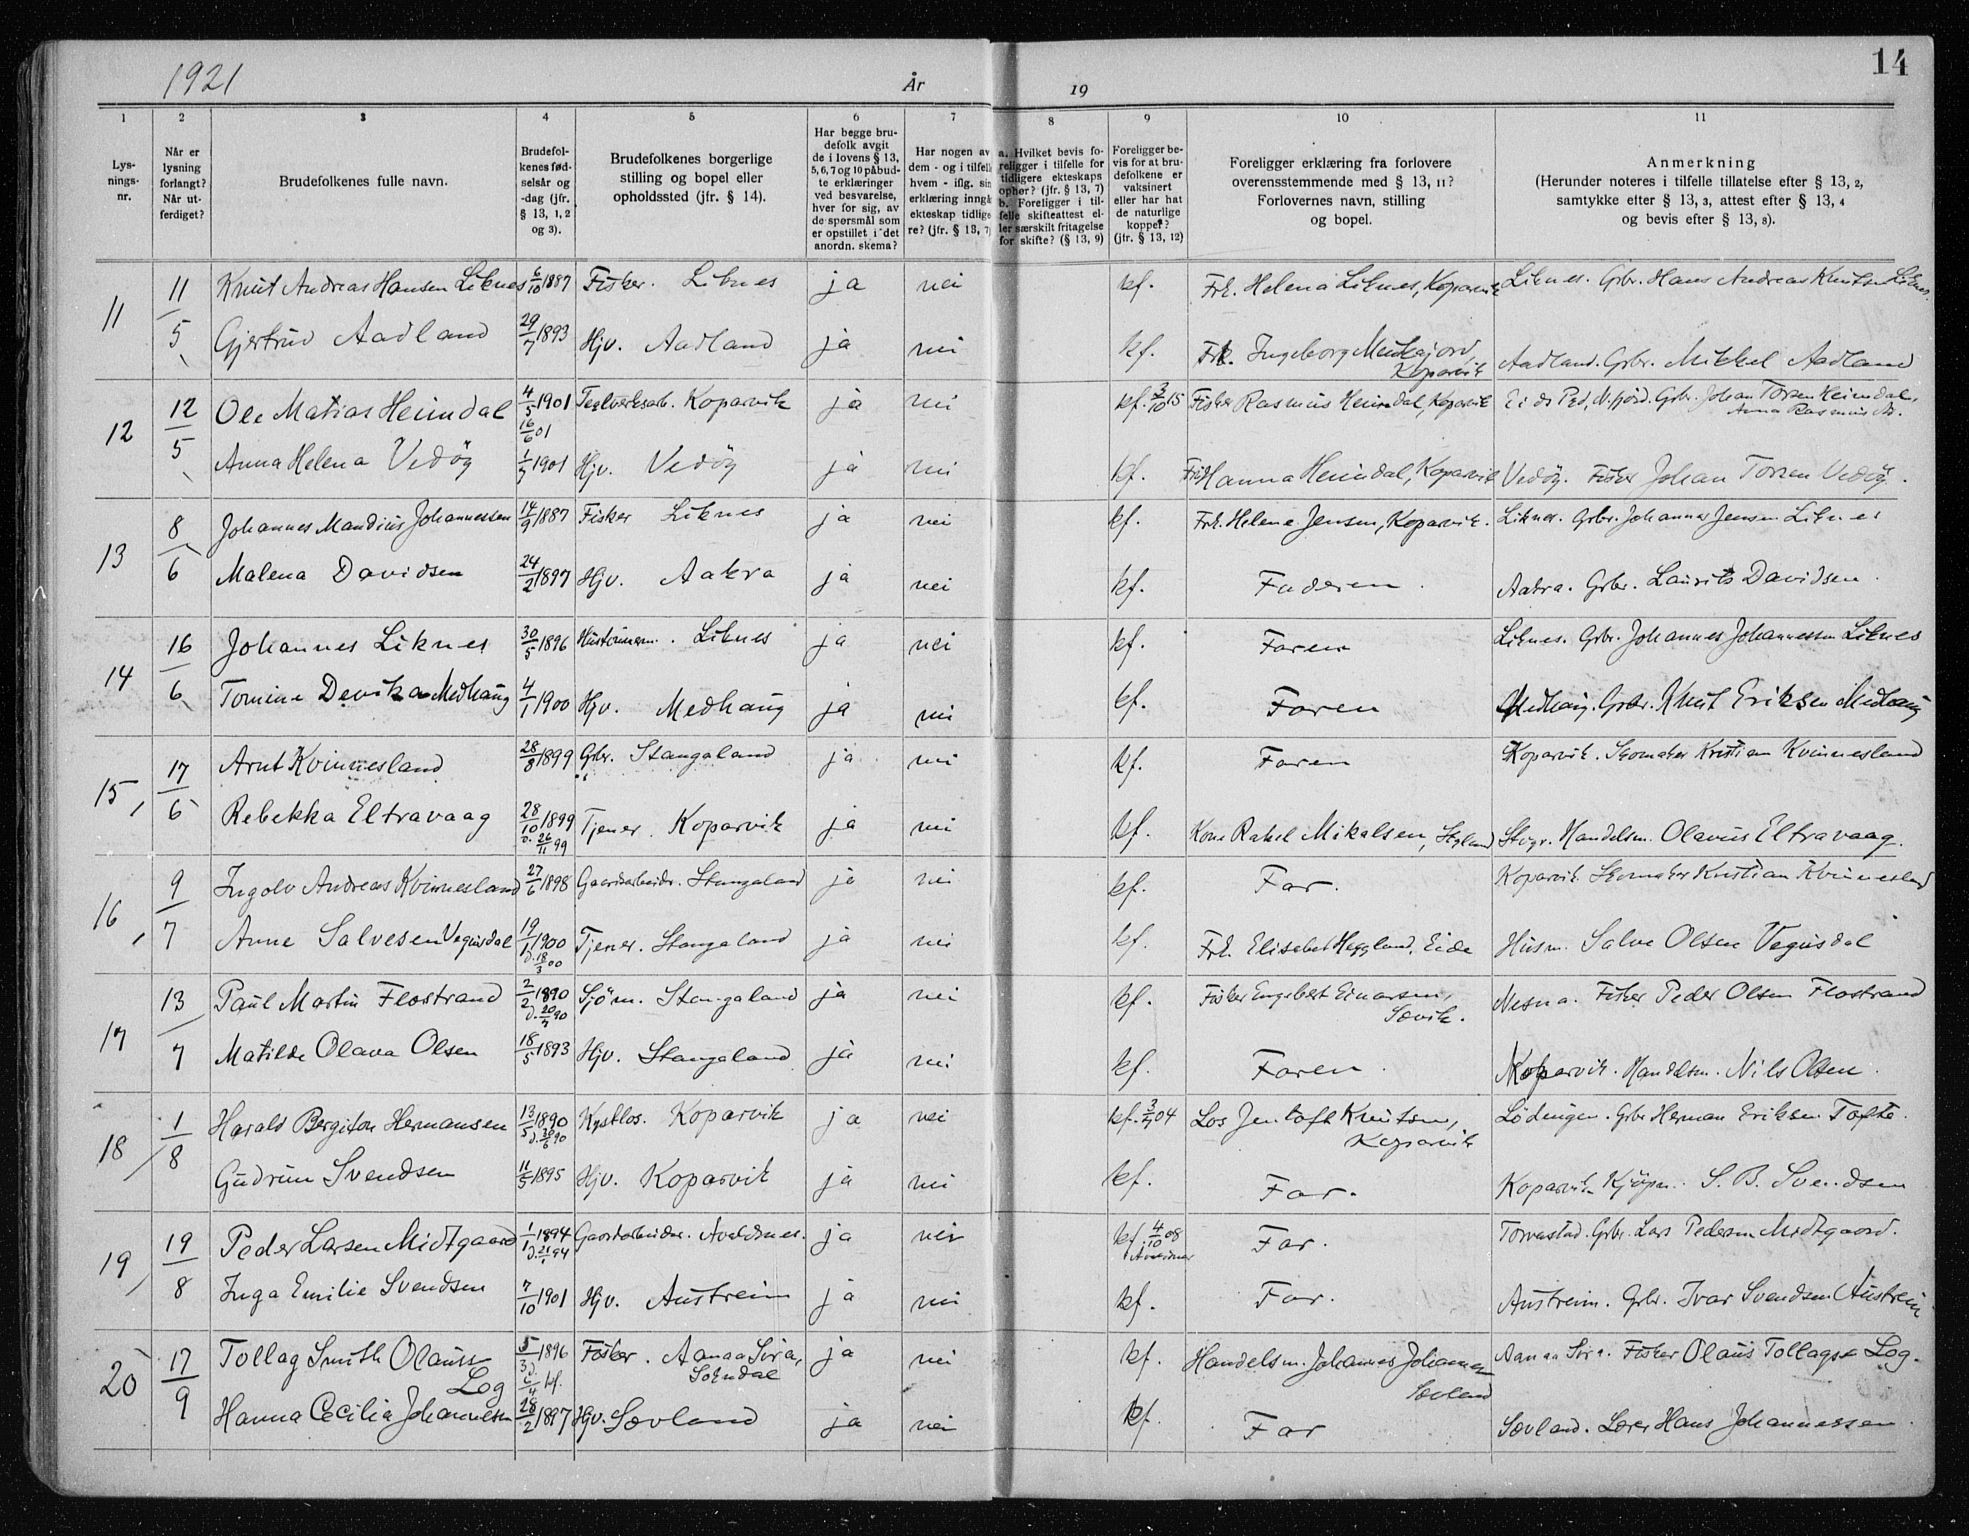 1921
År
19
14
1 2 3 4 5 6 7 8 9 10 11
Lys-
nings-
nr.
Når er
lysning
forlangt?
Når ut-
ferdiget?
Brudefolkenes fulle navn.
Brudefol-
kenes fød-
selsår og
-dag (jfr.
§ 13, 1, 2
og 3).
Brudefolkenes borgerlige
stilling og bopel eller
opholdssted (jfr. § 14).
Har begge bru-
defolk avgit
de i lovens § 13,
5, 6, 7 og 10 påbud-
te erklæringer
ved besvarelse,
hver for sig, av
de spørsmål som
er opstillet i det
anordn. skema?
Har nogen av
dem - og i tilfelle
hvem - iflg. sin
erklæring inngå
ekteskap tidlige
re? (jfr. § 13, 7)
a. Hvilket bevis fo-
religger i tilfelle for
tidligere ekteskaps
ophør? (jfr. § 13, 7)
b. Foreligger i til-
felle skifteattest el-
ler særskilt fritagelse
for skifte? (§ 13, 9)
Foreligger be-
vis for at bru-
defolkene er
vaksinert
eller har hat
de naturlige
kopper?
(jfr. § 13, 12)
Foreligger erklæring fra forlovere
overensstemmende med § 13, 11?
Forlovernes navn, stilling
og bopel.
Anmerkning
(Herunder noteres i tilfelle tillatelse efter § 13, 2,
samtykke efter § 13, 3, attest efter § 13, 4
og bevis efter § 13, 8).
11 11/5 Knut Andreas Hansen Liknes 6/10 1887 Fisker. Liknes ja nei kf. Frk. Helena Liknes, Koparvik Liknes. Grbr. Hans Andreas Knutsen Liknes.
Gjertrud Aadland 29/7 1893 Hjv. Aadland ja nei kf. Frk. Ingeborg Aadland. Grbr. Mikkel Aadland
Koparvik
12 12/5 Ole Matias Heimdal 4/5 1901 Koparvik ja nei kf. 3/10 15 Fisker Rasmus Heimdal, Koparvik Grbr. Johan Torsen Heimdal,
16/6 01
Anna Helena Vedöy 1/7 1901 Hjv. Vedöy ja nei kf. Hanna Heimdal, Koparvik Vedöy. Fisker Johan Torsen Vedöy.
13 8/6 Johannes Mandius Johannessen 14/9 1887 Fisker Liknes ja nei kf. Frk. Helene Jensen, Koparvik. Liknes. Grbr. Johannes Jensen Liknes
Malena Davidsen 24/2 1897 Hjv. Aakra ja nei kf. Faderen. Aakra. Grbr. Laurits Davidsen.
14 16/6 Johannes Liknes 30/5 1896 Liknes ja nei kf. Faren Liknes. Grbr. Johannes Johannessen Liknes
Tomine Devika Medhaug 4/1 1900 Hjv. Medhaug ja nei kf. Faren Medhaug. Grbr. Knut Eriksen Medhaug
15 17/6 Arnt Kvinnesland 28/8 1899 Grbr. Stangaland ja nei kf. Faren Koparvik. Skomaker Kristian Kvinnesland
Rebekka Eltravaag 28/10 1899 Tjener. Koparvik ja nei kf. Kone Rakel Mikalsen, Handelsm. Olavus Eltravaag.
d. 26/11 99
16 9/7 Ingolv Andreas Kvinnesland 27/6 1898 Gaardarbeider. Stangaland ja nei kf. Far. Koparvik. Skomaker Kristian Kvinnesland
Anne Salvesen Vegusdal 19/1 1900 Tjener. Stangaland ja nei kf. Frk. Elisabet Heggland, Eide Husm. Salve Olsen Vegusdal
d. 18/3 00
17 13/7 Paul Martin Flostrand 2/2 1890 Sjöm. Stangaland ja nei kf. Fisker Engebert Einarsen, Nesna. Fisker Peder Olsen Flostrand
Sævik.
Matilde Olava Olsen 18/5 1893 Hjv. Stangaland ja nei kf. Faren. Koparvik. Handelsm. Nils Olsen.
18 1/8 Harald Bergiton Hermansen 13/5 1890 Kystlos. Koparvik ja nei kf. 3/7 04 Los Jentoft Knutsen, Lödingen. Grbr Herman Eriksen Tofte.
Koparvik
Gudrun Svendsen 11/5 1895 Hjv. Koparvik ja nei kf. Far. Koparvik Kjöpm. S. B. Svendsen
19 19/8 Peder Larsen Midtgaard 1/1 1894 Gaardarbeider. Avaldsnes. ja nei kf. 4/10 08 Far. Torvastad. Grbr. Lars Pedersen Midtgaard.
Inga Emilie Svendsen 7/10 1901 Hjv. Austreim ja nei kf. Far. Austreim. Grbr. Ivar Svendsen Austreim
20 17/9 Tollag Smith Olausen 5/3 1896 Fisker. Aanaa Sira, ja nei kf. Handelsm. Johannes Johannesen Aanaa Sira. Fisker Olaus Tollagsen Log.
Log Sokndal Sævland
Hanna Cecilia Johannesen 28/2 1897 Hjv. Sævland ja nei kf. Far Sævland. Lærer Hans Johannessen.